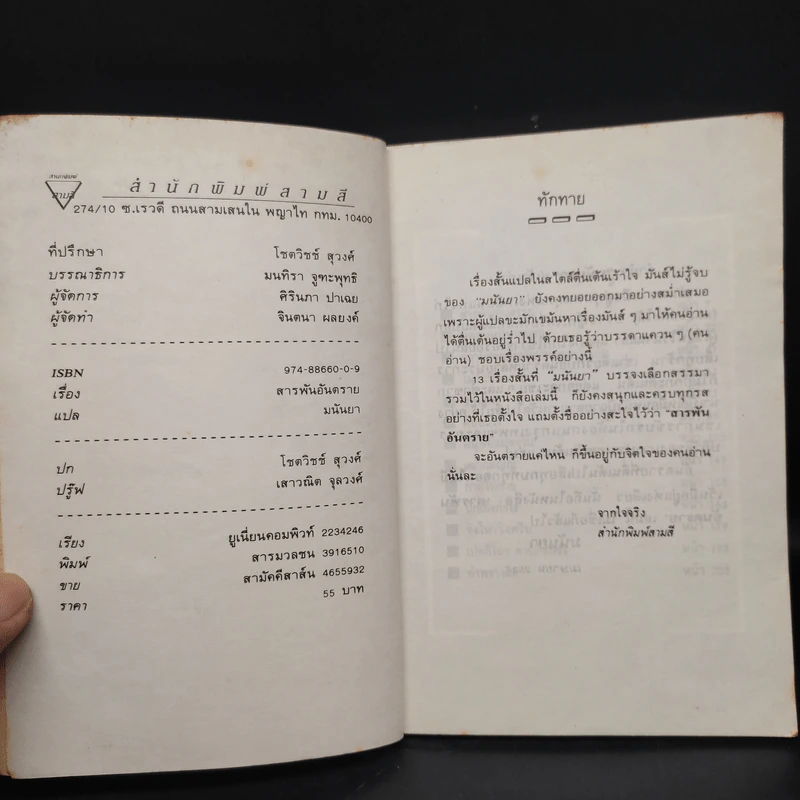 สำนักพิมพ์
สามสี
สำนักพิมพ์สามสี
274/10 ซ.เรวดี ถนนสามเสนใน พญาไท กทม. 10400
ที่ปรึกษา โชตวิชช์ สุวงศ์
บรรณาธิการ มนทิรา จูฑะพุทธิ
ผู้จัดการ ศิรินภา ปาเฉย
ผู้จัดทำ จินตนา ผลยงค์
ISBN 974-88660-0-9
เรื่อง สารพันอันตราย
แปล มนันยา
ปก โชตวิชช์ สุวงศ์
ปรู๊ฟ เสาวณิต จุลวงศ์
เรียง ยูเนี่ยนคอมพิวท์ 2234246
พิมพ์ สารมวลชน 3916510
ขาย สามัคคีสาส์น 4655932
ราคา 55 บาท
ทักทาย
เรื่องสั้นแปลในสไตล์ตื่นเต้นเร้าใจ มันส์ไม่รู้จบ
ของ "มนันยา" ยังคงทยอยออกมาอย่างสม่ำเสมอ
เพราะผู้แปลขะมักเขม้นหาเรื่องมันส์ ๆ มาให้คนอ่าน
ได้ตื่นเต้นอยู่ร่ำไป ด้วยเธอรู้ว่าบรรดาแควน ๆ (คน
อ่าน) ชอบเรื่องพรรค์อย่างนี้
13 เรื่องสั้นที่ "มนันยา" บรรจงเลือกสรรมา
รวมไว้ในหนังสือเล่มนี้ ก็ยังคงสนุกและครบทุกรส
อย่างที่เธอตั้งใจ แถมตั้งชื่ออย่างสะใจไว้ว่า "สารพัน
อันตราย"
จะอันตรายแค่ไหน ก็ขึ้นอยู่กับจิตใจของคนอ่าน
นั่นละ
จากใจจริง
สำนักพิมพ์สามสี